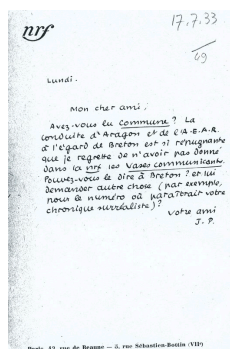 nrf
17.7.33
49
Lundi.
Mon cher ami,
Avez-vous lu Commune? La
conduite d'Aragon et de l'A.E.A.R.
à l'égard de Breton est si répugnante
que je regrette de n'avoir pas donné
dans la nrf les Vases communicants.
Pouvez-vous le dire à Breton? et lui
demander autre chose (par exemple,
pour le numéro où paraîtrait votre
chronique surréaliste)?
votre ami
J. P.
Paris, 43, rue de Beaune — 5, rue Sébastien-Bottin (VIIᵉ)